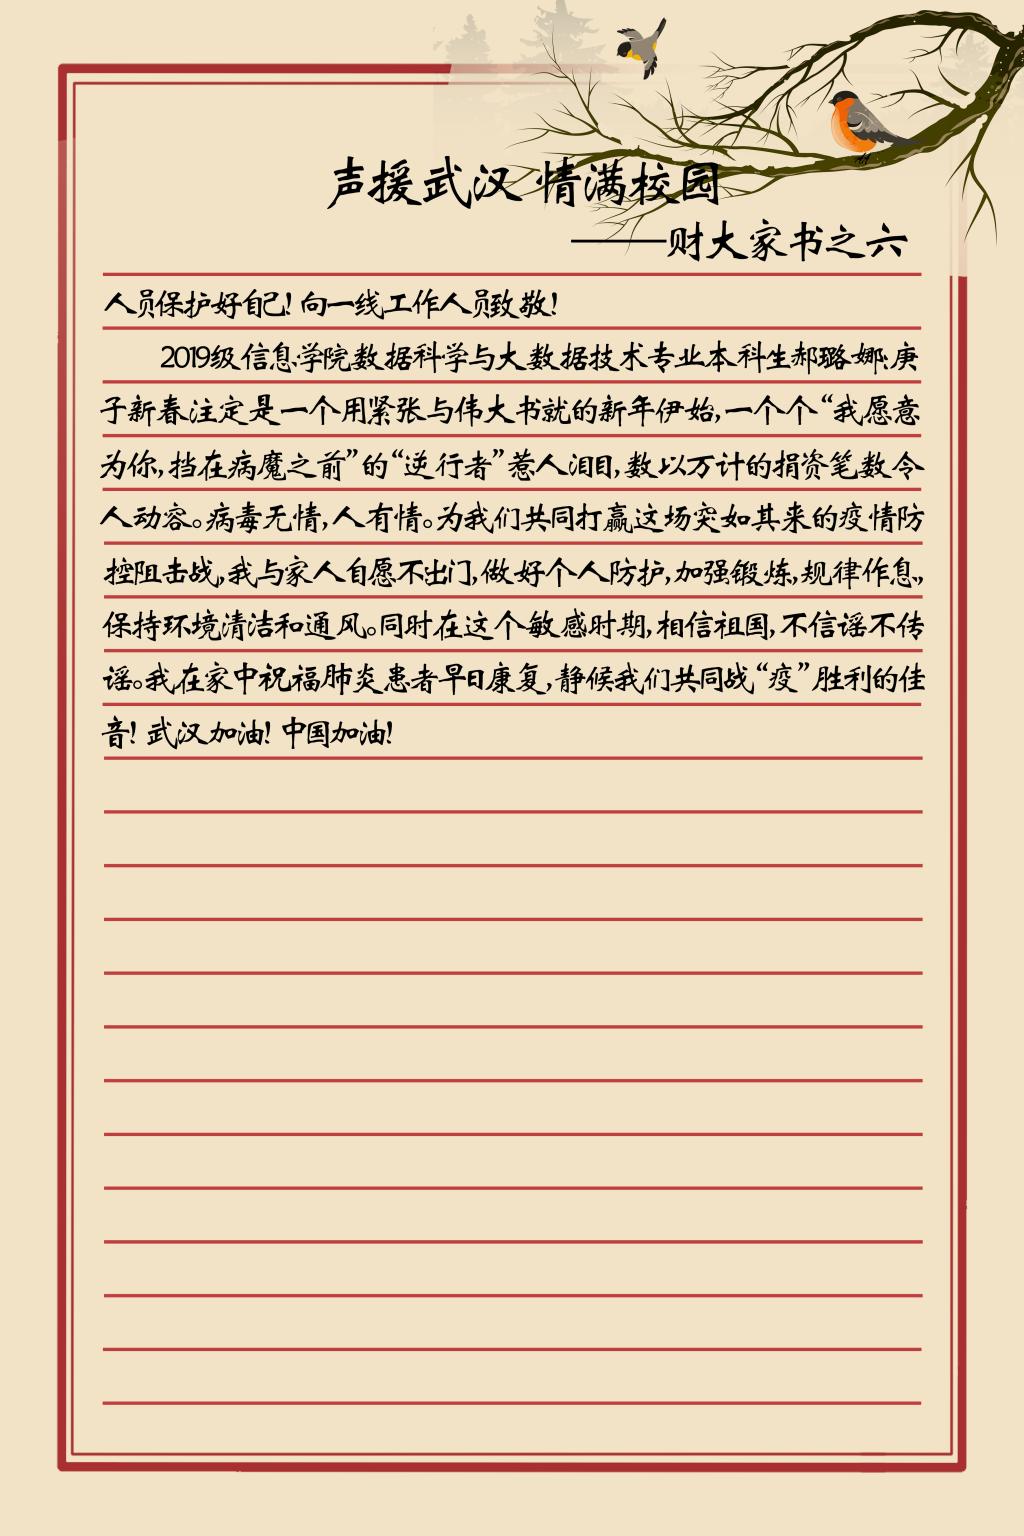 声援武汉 情满校园
——财大家书之六
人员保护好自己！向一线工作人员致敬！
2019级信息学院数据科学与大数据技术专业本科生郝璐娜：庚
子新春注定是一个用紧张与伟大书就的新年伊始，一个个“我愿意
为你，挡在病魔之前”的“逆行者”惹人泪目，数以万计的捐资笔数令
人动容。病毒无情，人有情。为我们共同打赢这场突如其来的疫情防
控阻击战，我与家人自愿不出门，做好个人防护，加强锻炼，规律作息，
保持环境清洁和通风。同时在这个敏感时期，相信祖国，不信谣不传
谣。我在家中祝福肺炎患者早日康复，静候我们共同战“疫”胜利的佳
音！武汉加油！中国加油！